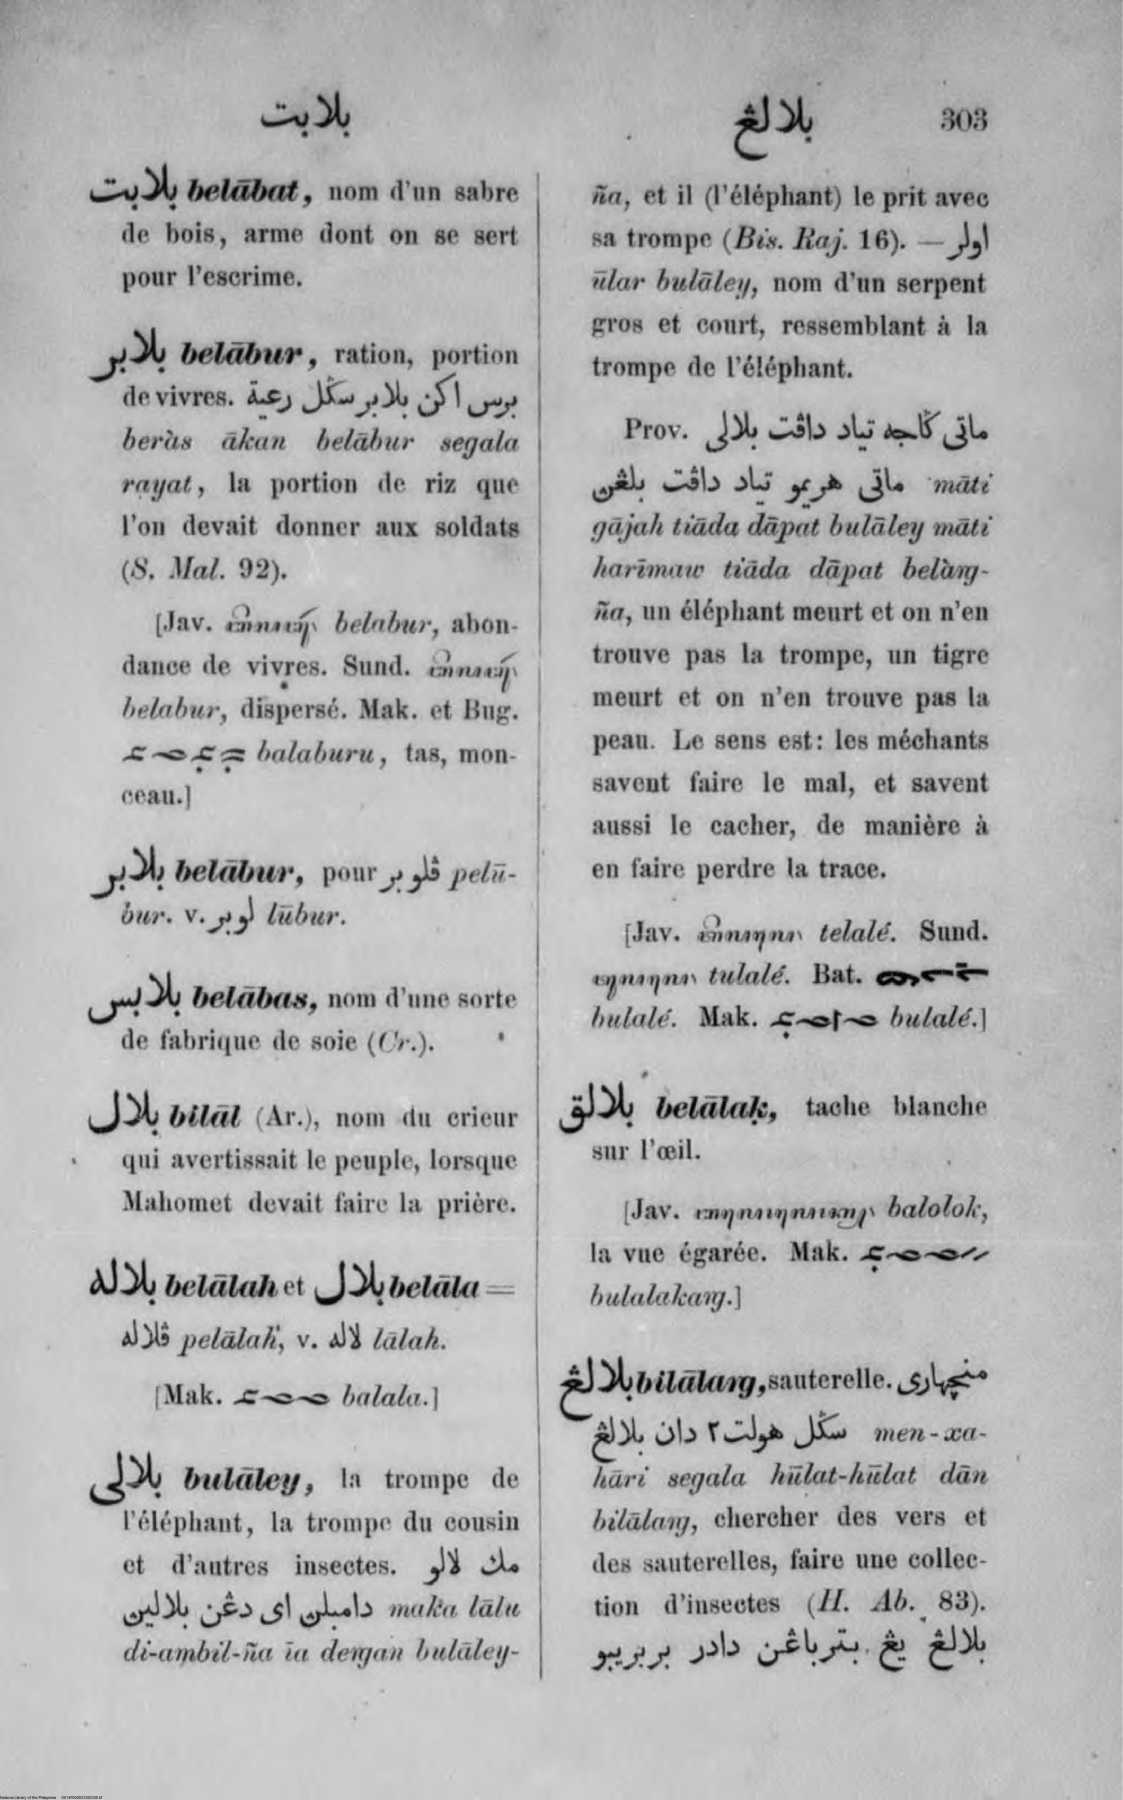 بلابت
بلالڠ 303
بلابت belābat, nom d'un sabre
de bois, arme dont on se sert
pour l'escrime.
بلابر belābur, ration, portion
de vivres. برس اکن بلابر سکل رعية
beràs ākan belābur segala
rayat, la portion de riz que
l'on devait donner aux soldats
(S. Mal. 92).
[Jav. belabur, abon-
dance de vivres. Sund.
belabur, dispersé. Mak. et Bug.
balaburu, tas, mon-
ceau.]
بلابر belābur, pour ڤلوبر pelū-
bur. v. لوبر lūbur.
بلابس belābas, nom d'une sorte
de fabrique de soie (Cr.).
بلال bilāl (Ar.), nom du crieur
qui avertissait le peuple, lorsque
Mahomet devait faire la prière.
بلاله belālah et بلال belāla =
ڤلاله pelālah, v. لاله lālah.
[Mak. balala.]
بلالي bulāley, la trompe de
l'éléphant, la trompe du cousin
et d'autres insectes. مك لالو
دامبلن اى دڠن بلالين maka lālu
di-ambil-ña īa dengan bulāley-
ña, et il (l'éléphant) le prit avec
sa trompe (Bis. Raj. 16). — اولر
ūlar bulāley, nom d'un serpent
gros et court, ressemblant à la
trompe de l'éléphant.
Prov. ماتى ڬاجه تياد داڤت بلالى
ماتى هريمو تياد داڤت بلڠن māti
gājah tiāda dāpat bulāley māti
harīmaw tiāda dāpat belàng-
ña, un éléphant meurt et on n'en
trouve pas la trompe, un tigre
meurt et on n'en trouve pas la
peau. Le sens est: les méchants
savent faire le mal, et savent
aussi le cacher, de manière à
en faire perdre la trace.
[Jav. telalé. Sund.
tulalé. Bat.
bulalé. Mak. bulalé.]
بلالق belālaḳ, tache blanche
sur l'œil.
[Jav. balolok,
la vue égarée. Mak.
bulalakang.]
بلالڠ bilālang, sauterelle. منچهارى
سڬل هولت٢ دان بلالڠ men-xa-
hāri segala hūlat-hūlat dān
bilālang, chercher des vers et
des sauterelles, faire une collec-
tion d'insectes (H. Ab. 83).
بلالڠ يڠ بترباڠن دادر بربريبو